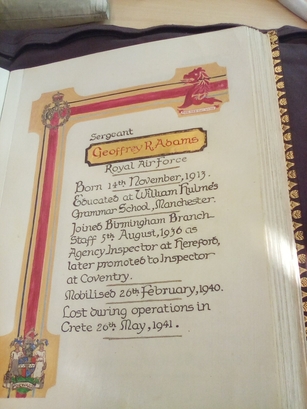 Sergeant
Geoffrey R Adams
Royal Air Force
Born 14th November, 1913.
Educated at William Hulme's
Grammar School, Manchester.
Joined Birmingham Branch
Staff 5th August, 1936 as
Agency Inspector at Hereford,
later promoted to Inspector
at Coventry.
Mobilised 26th February, 1940.
Lost during operations in
Crete 26th May, 1941.